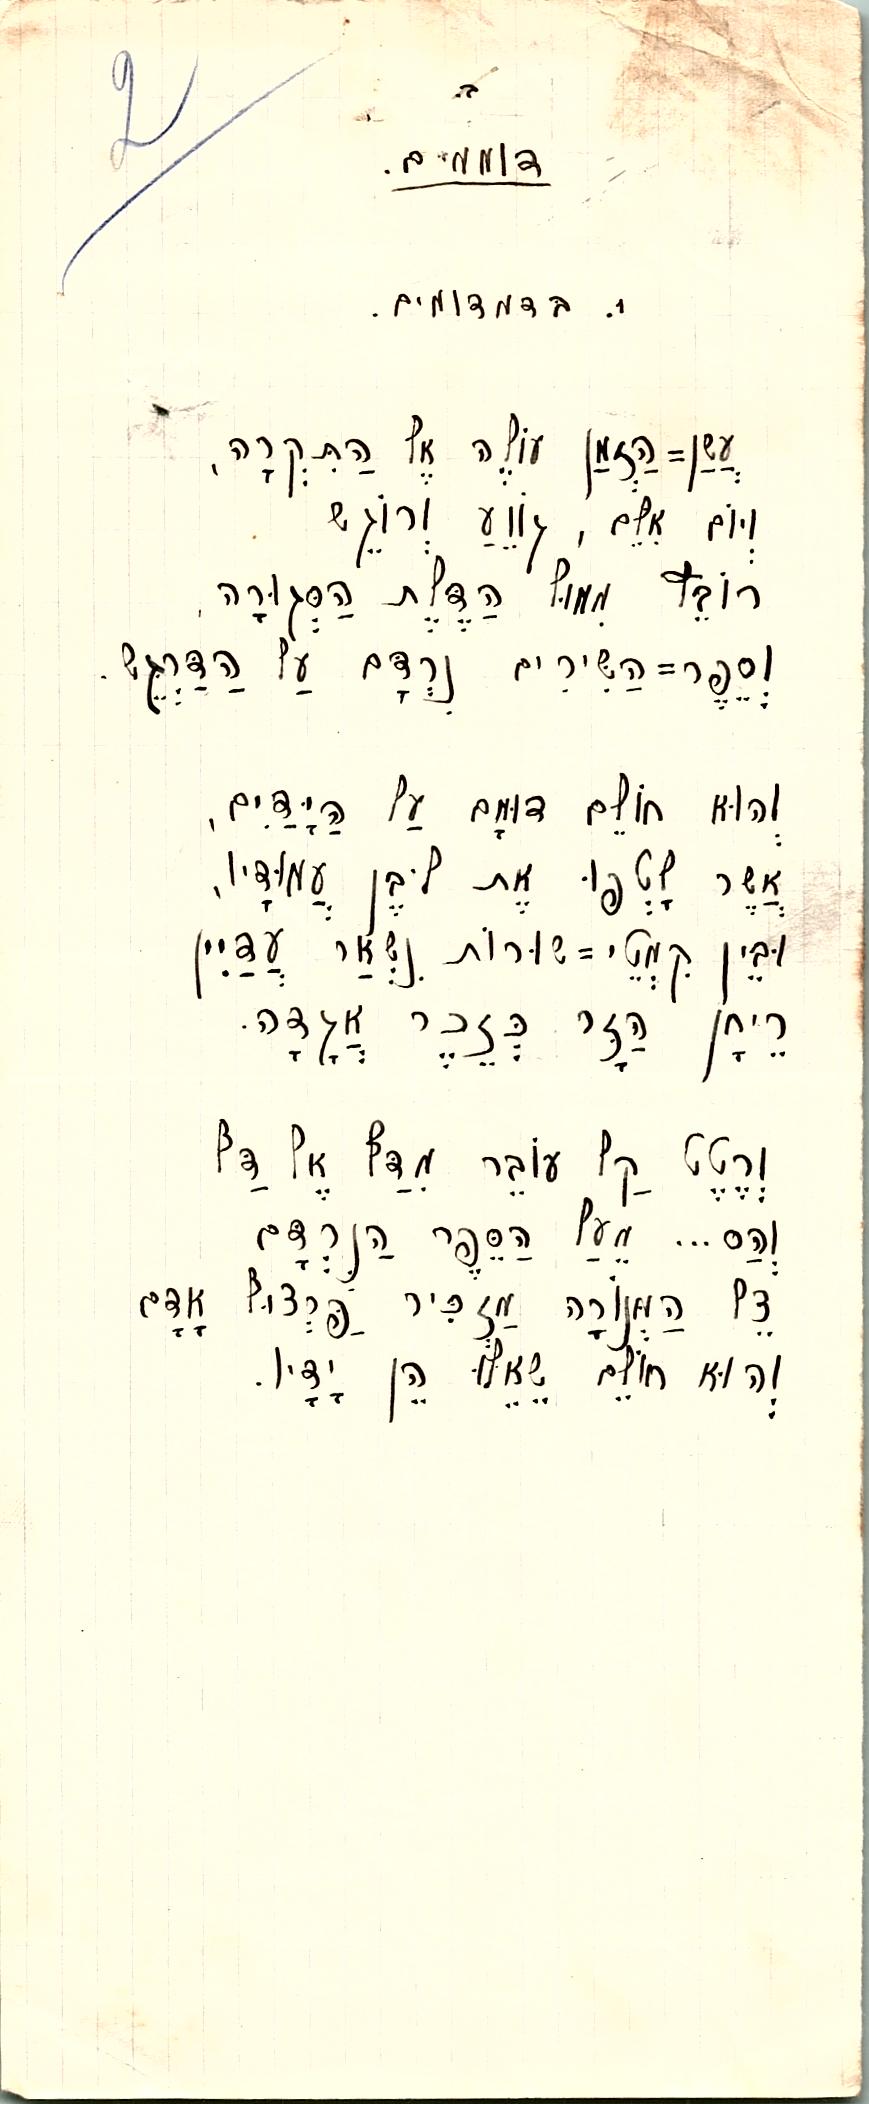 2
ב.
דוממים.
1. בדמדומים.
עֲשַׁן=הַזְּמַן עוֹלֶה אֶל הַתִּקְרָה,
וְיוֹם אִלֵּם, גּוֹוֵעַ וְרוֹגֵשׁ
רוֹבֵץ מִמּוּל הַדֶּלֶת הַסְּגוּרָה,
וְסֵפֶר=הַשִּׁירִים נִרְדָּם עַל הַדַּרְגֵּשׁ.
וְהוּא חוֹלֵם דּוּמָם עַל הַיָּדַיִם,
אֲשֶׁר לָטְפוּ אֶת לִיבֶּן עֲמוּדָיו,
וּבֵין קִמְטֵי=שׂוּרוֹת נִשְׁאַר עֲדַיִין
רֵיחָן הַזָּר כְּזֵכֶר אֲגָדָה.
וְרֶטֶט קַל עוֹבֵר מִדַּף אֶל דַּף
וְהַס... מֵעַל הַסֵּפֶר הַנִּרְדָּם
צֵל הַמְּנוֹרָה מַזְכִּיר פַּרְצוּף אָדָם
וְהוּא חוֹלֵם שֶׁאֵלּוּ הֵן יָדָיו.